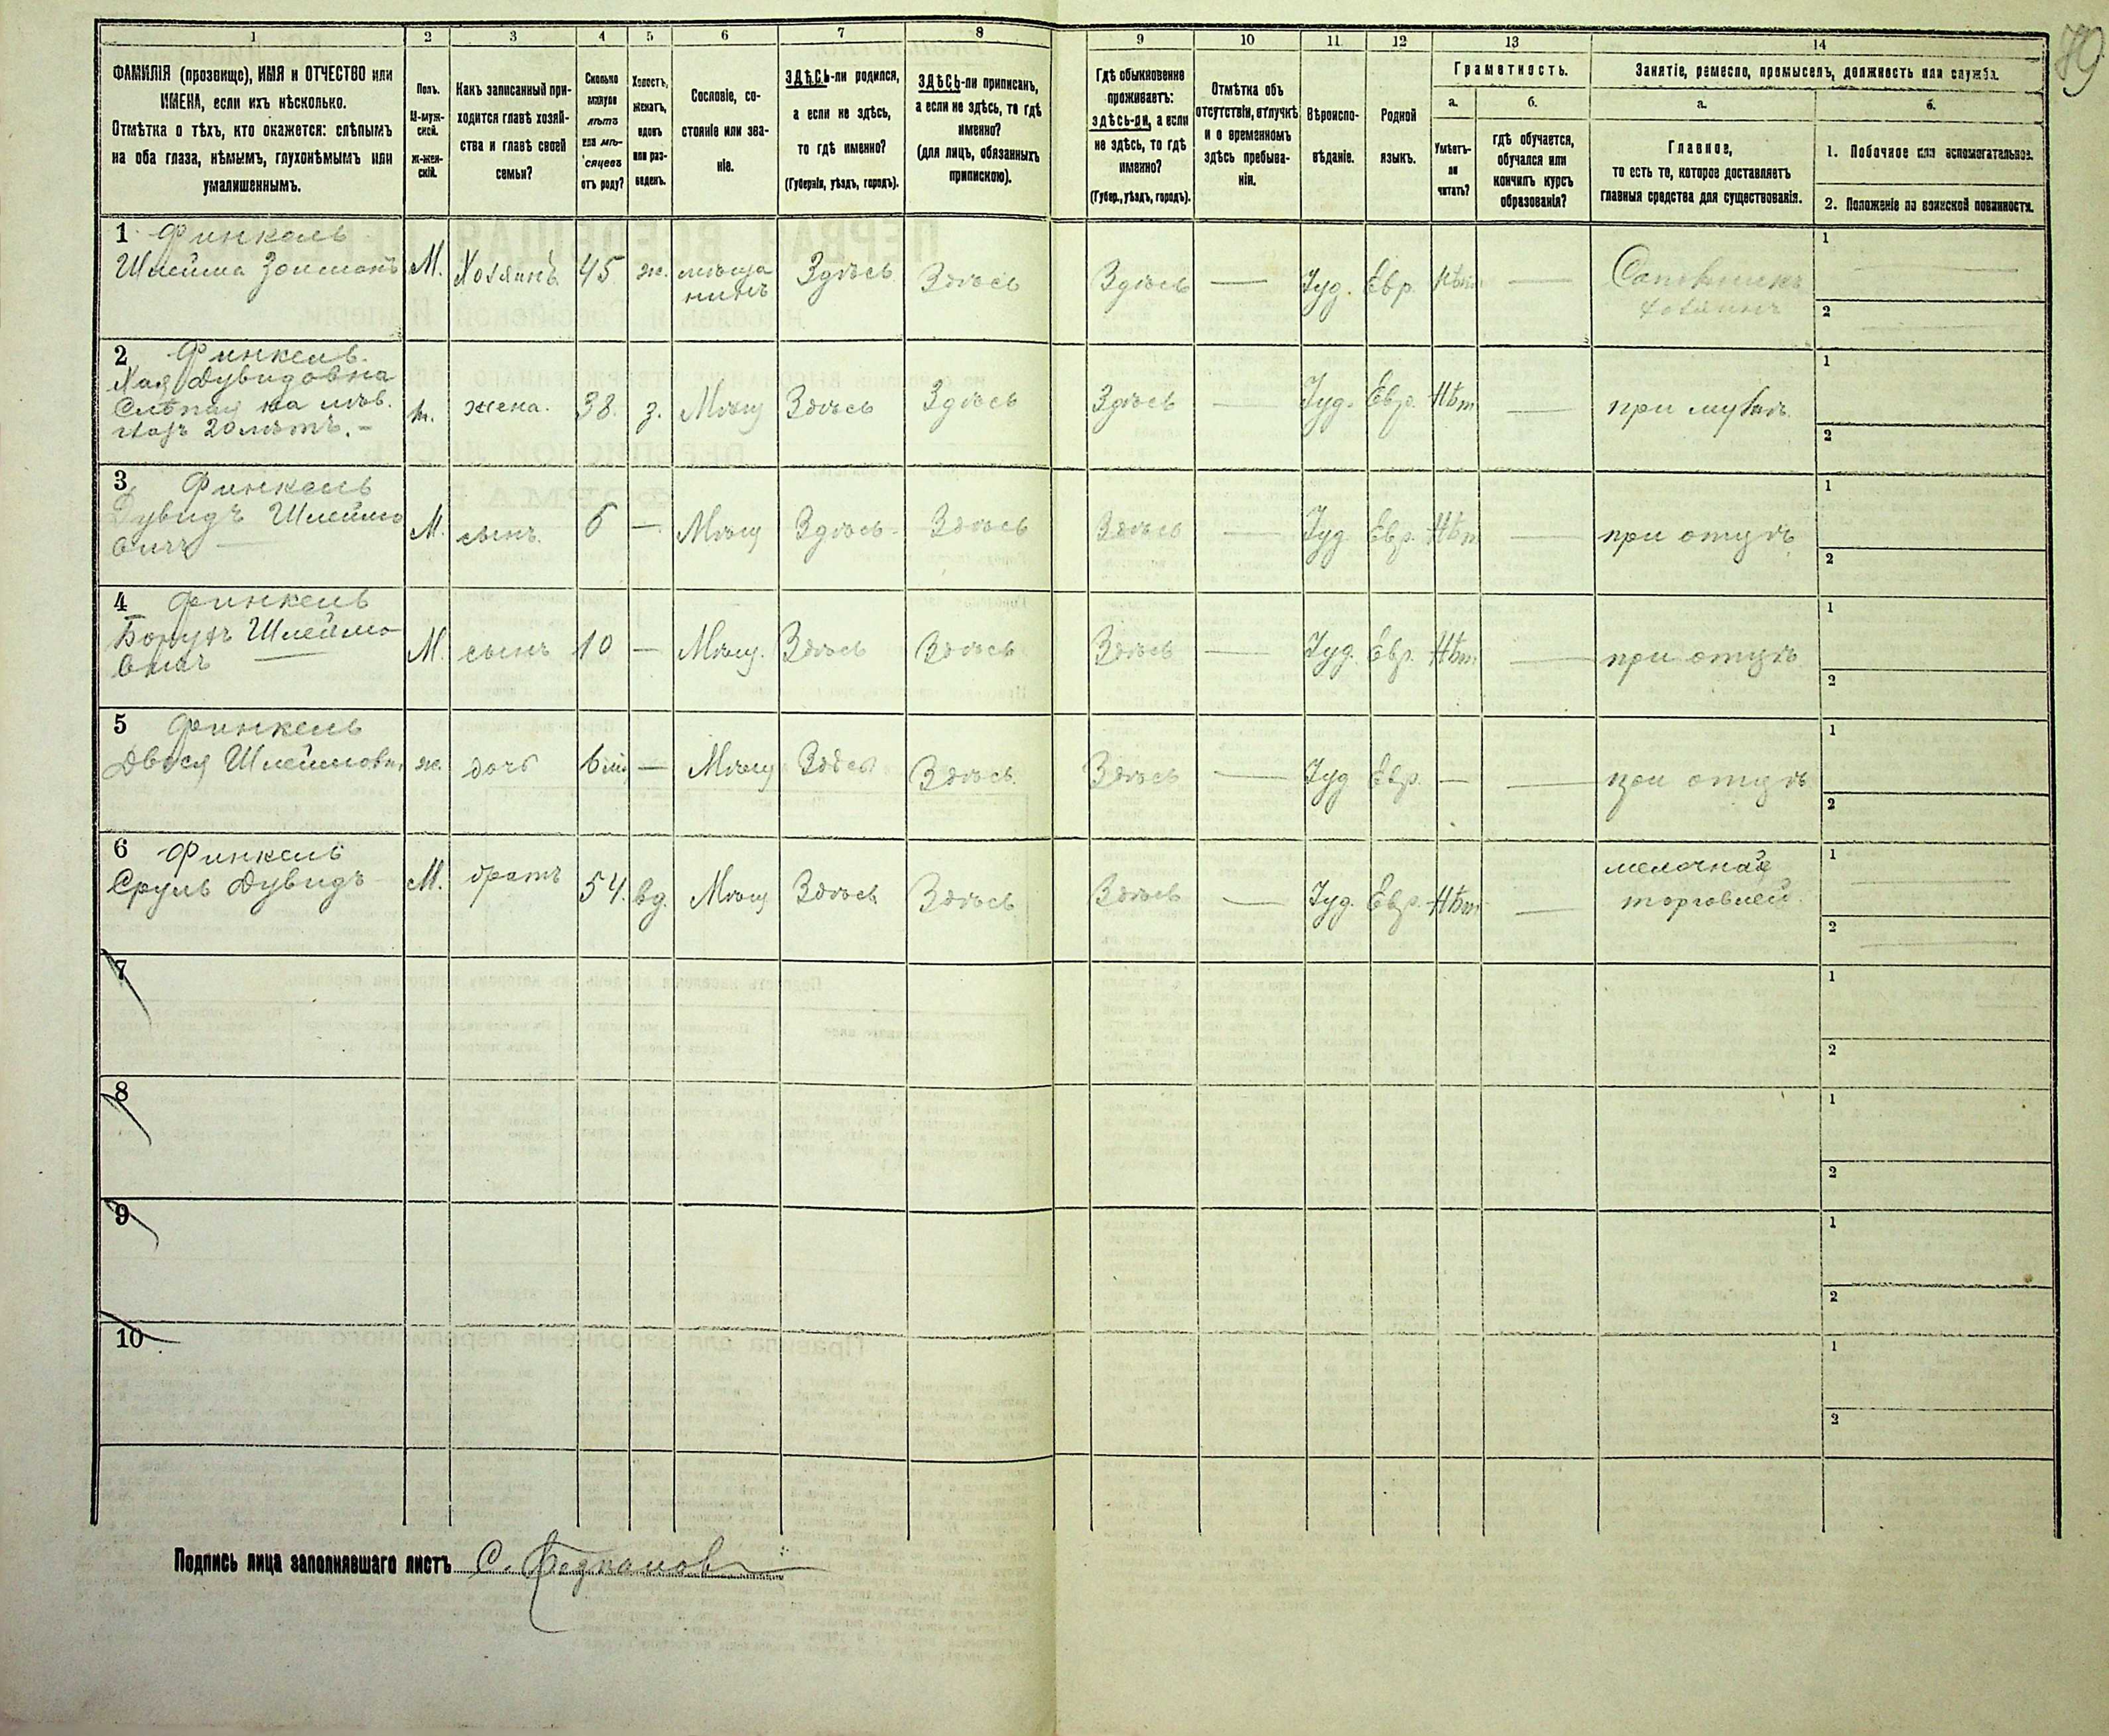 79
1 2 3 4 5 6 7 8 9 10 11 12 13 14
ФАМИЛІЯ (прозвище), ИМЯ и ОТЧЕСТВО или
ИМЕНА, если ихъ нѣсколько.
Отмѣтка о тѣхъ, кто окажется: слѣпымъ
на оба глаза, нѣмымъ, глухонѣмымъ или
умалишеннымъ.
Полъ.
М-муж-
ской.
ж-жен-
скій.
Какъ записанный при-
ходится главѣ хозяй-
ства и главѣ своей
семьи?
Сколько
минуло
лѣтъ
или мѣ-
сяцевъ
отъ роду?
Холостъ,
женатъ,
вдовъ
или раз-
веденъ.
Сословіе, со-
стояніе или зва-
ніе.
ЗДѢСЬ-ли родился,
а если не здѣсь,
то гдѣ именно?
(Губернія, уѣздъ, городъ).
ЗДѢСЬ-ли приписанъ,
а если не здѣсь, то гдѣ
именно?
(для лицъ, обязанныхъ
припискою).
Гдѣ обыкновенно
проживаетъ:
здѣсь-ли, а если
не здѣсь, то гдѣ
именно?
(Губер., уѣздъ, городъ).
Отмѣтка объ
отсутствіи, отлучкѣ
и о временномъ
здѣсь пребыва-
ніи.
Вѣроиспо-
вѣданіе.
Родной
языкъ.
Грамотность.
а.
Умѣетъ-
ли
читать?
б.
гдѣ обучается,
обучался или
кончилъ курсъ
образованія?
Занятіе, ремесло, промыселъ, должность или служба.
а.
Главное,
то есть то, которое доставляетъ
главныя средства для существованія.
б.
1. Побочное или вспомогательное.
2. Положеніе по воинской повинности.
1 Финкель
Шлейма М. Хозяинъ 45 ж. мѣща
нинъ Здѣсь Здѣсь Здѣсь — Іуд. Евр. Нѣт — Сапожникъ
хозяинъ
1
2
2 Финкель
Хая Дувидовна
Слѣпая на лѣв.
глазъ 20 лѣтъ. — ж. жена. 38. з. Мѣщ Здѣсь Здѣсь Здѣсь — Іуд. Евр. Нѣт — при мужѣ.
1
2
3 Финкель
Дувидъ Шлеймо
вичъ — М. сынъ. 6 — Мѣщ Здѣсь Здѣсь Здѣсь — Іуд. Евр. Нѣт — при отцѣ
1
2
4 Финкель
Борухъ Шлеймо
вичъ — М. сынъ 10 — Мѣщ. Здѣсь Здѣсь Здѣсь — Іуд. Евр. Нѣт — при отцѣ
1
2
5 Финкель
Двося Шлеймовн. ж. дочь 6 — Мѣщ Здѣсь Здѣсь. Здѣсь — Іуд Евр. — — при отцѣ
1
2
6 Финкель
Сруль Дувидъ М. братъ 54. вд. Мѣщ Здѣсь Здѣсь Здѣсь — Іуд. Евр. Нѣт — мелочная
торговлей.
1
2
7
1
2
8
1
2
9
1
2
10
1
2
Подпись лица заполнявшаго листъ С.